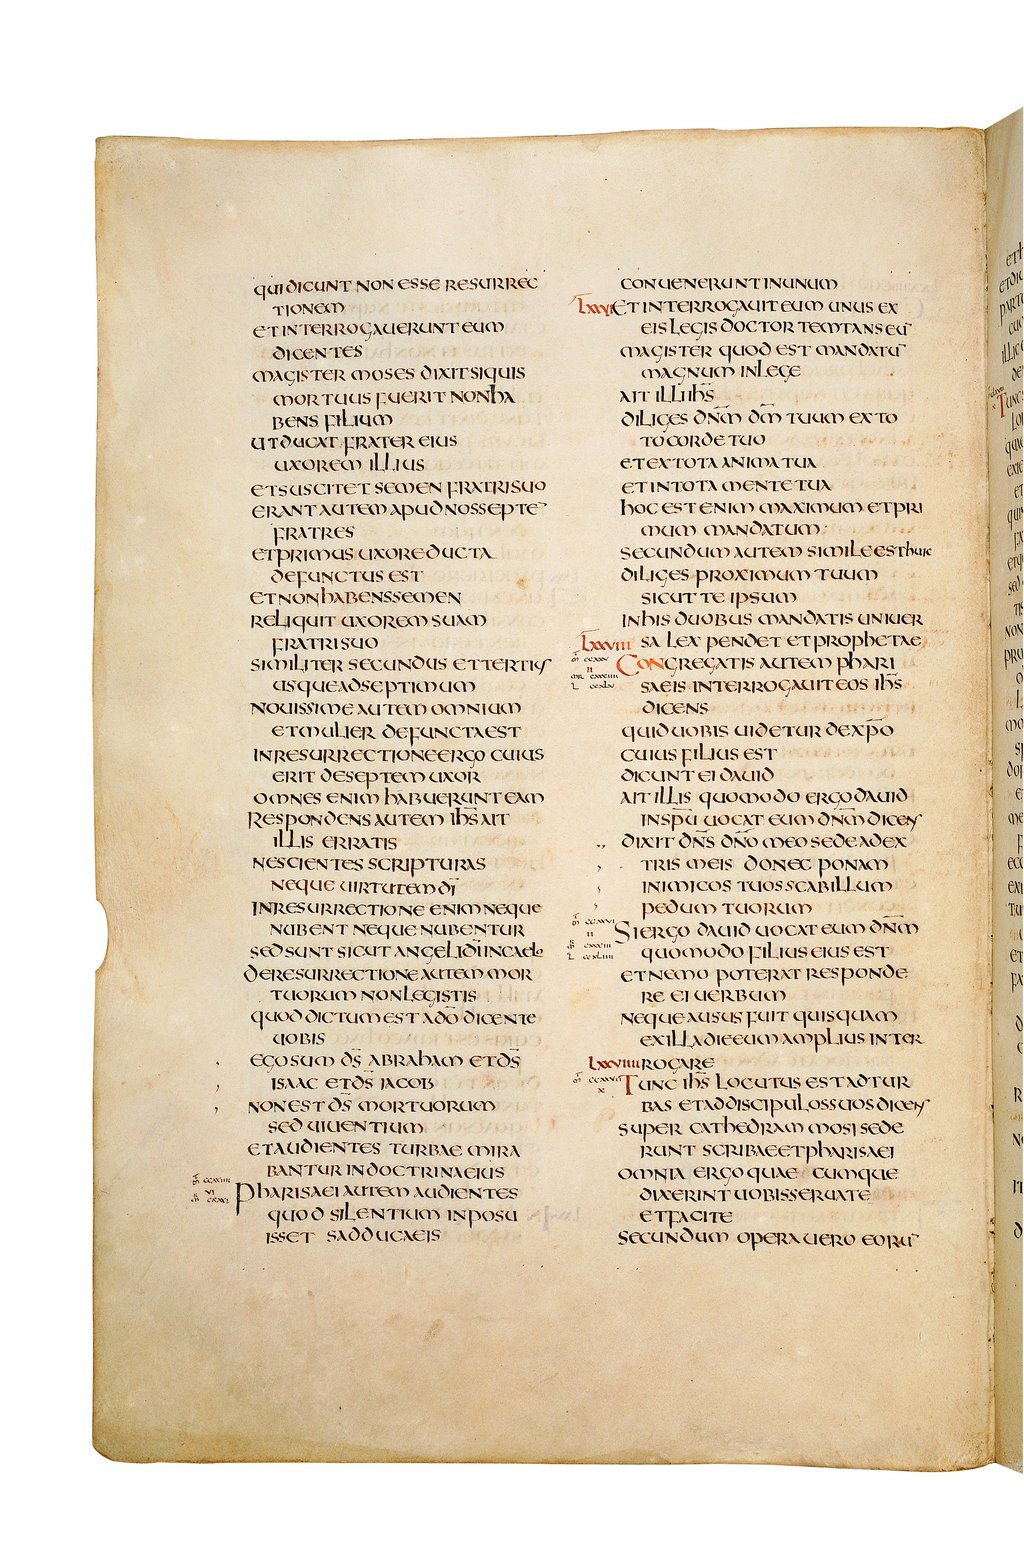 QUI DICUNT NON ESSE RESURREC
TIONEM
ET INTERROGAUERUNT EUM
DICENTES
MAGISTER MOSES DIXIT SI QUIS
MORTUUS FUERIT NON HA
BENS FILIUM
UT DUCAT FRATER EIUS
UXOREM ILLIUS
ET SUSCITET SEMEN FRATRI SUO
ERANT AUTEM APUD NOS SEPTE¯
FRATRES
ET PRIMUS UXORE DUCTA
DEFUNCTUS EST
ET NON HABENS SEMEN
RELIQUIT UXOREM SUAM
FRATRI SUO
SIMILITER SECUNDUS ET TERTIUS
USQUE AD SEPTIMUM
NOUISSIME AUTEM OMNIUM
ET MULIER DEFUNCTA EST
IN RESURRECTIONE ERGO CUIUS
ERIT DE SEPTEM UXOR
OMNES ENIM HABUERUNT EAM
RESPONDENS AUTEM IH̅S AIT
ILLIS ERRATIS
NESCIENTES SCRIPTURAS
NEQUE UIRTUTEM DI̅
IN RESURRECTIONE ENIM NEQUE
NUBENT NEQUE NUBENTUR
SED SUNT SICUT ANGELI DI̅ IN CAELO
DE RESURRECTIONE AUTEM MOR
TUORUM NON LEGISTIS
QUOD DICTUM EST A DO̅ DICENTE
UOBIS
EGO SUM DS̅ ABRAHAM ET DS̅
ISAAC ET DS̅ IACOB
NON EST DS̅ MORTUORUM
SED UIUENTIUM
ET AUDIENTES TURBAE MIRA
BANTUR IN DOCTRINA EIUS
PHARISAEI AUTEM AUDIENTES
QUOD SILENTIUM INPOSU
ISSET SADDUCAEIS
CONUENERUNT IN UNUM
LXXVII ET INTERROGAUIT EUM UNUS EX
EIS LEGIS DOCTOR TEMTANS EU¯
MAGISTER QUOD EST MANDATU¯
MAGNUM IN LEGE
AIT ILLI IH̅S
DILIGES DN̅M DM̅ TUUM EX TO
TO CORDE TUO
ET EX TOTA ANIMA TUA
ET IN TOTA MENTE TUA
HOC EST ENIM MAXIMUM ET PRI
MUM MANDATUM
SECUNDUM AUTEM SIMILE EST HUIC
DILIGES PROXIMUM TUUM
SICUT TE IPSUM
IN HIS DUOBUS MANDATIS UNIUER
LXXVIII SA LEX PENDET ET PROPHETAE
CONGREGATIS AUTEM PHARI
SAEIS INTERROGAUIT EOS IH̅S
DICENS
QUID UOBIS UIDETUR DE XP̅O
CUIUS FILIUS EST
DICUNT EI DAUID
AIT ILLIS QUOMODO ERGO DAUID
IN SPU̅ UOCAT EUM DN̅M DICENS
DIXIT DN̅S DN̅O MEO SEDE A DEX
TRIS MEIS DONEC PONAM
INIMICOS TUOS SCABILLUM
PEDUM TUORUM
SI ERGO DAUID UOCAT EUM DN̅M
QUOMODO FILIUS EIUS EST
ET NEMO POTERAT RESPONDE
RE EI UERBUM
NEQUE AUSUS FUIT QUISQUAM
EX ILLA DIE EUM AMPLIUS INTER
LXXVIIII ROGARE
TUNC IH̅S LOCUTUS EST AD TUR
BAS ET AD DISCIPULOS SUOS DICENS
SUPER CATHEDRAM MOSI SEDE
RUNT SCRIBAE ET PHARISAEI
OMNIA ERGO QUAE CUMQUE
DIXERINT UOBIS SERUATE
ET FACITE
SECUNDUM OPERA UERO EORU¯